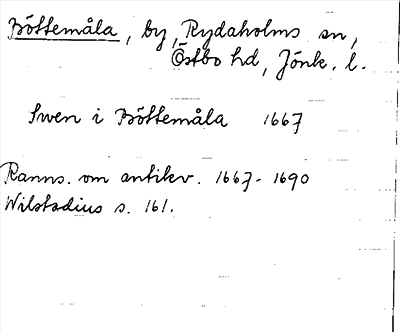 Böttemåla, by, Rydaholms sn,
Östbo hd, Jönk. l.
Swen i Böttemåla 1667
Ranns. om antikv. 1667-1690
Wilstadius s. 161.